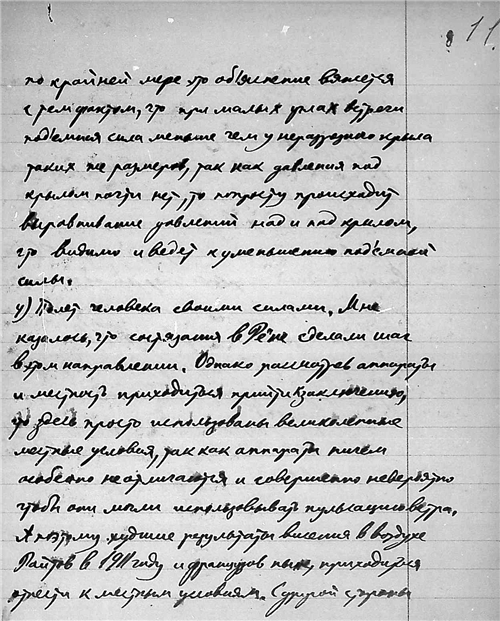 8 11
по крайней мере это объяснение вяжется
с тем фактом, что при малых углах встречи
под'емная сила меньше чем у неразрезного крыла
таких же размеров, так как давления под
крылом почти нет, то попросту происходит
выравнивание давлений над и под крылом,
что видимо и ведет к уменьшению под'емной
силы.
4) Полет человека своими силами. Мне
казалось, что состязания в Рёне сделали шаг
в этом направлении. Однако рассмотрев аппараты
и местность приходиться прийти к заключению,
что здесь просто использованы великолепные
местные условия, так как аппараты ничем
особенно не отличаются и совершенно невероятно
чтобы они могли использовывать пульсацию ветра.
А поэтому худшие результаты висения в воздухе
Райтов в 1911 году и французов ныне, приходиться
отнести к местным условиям. С другой стороны